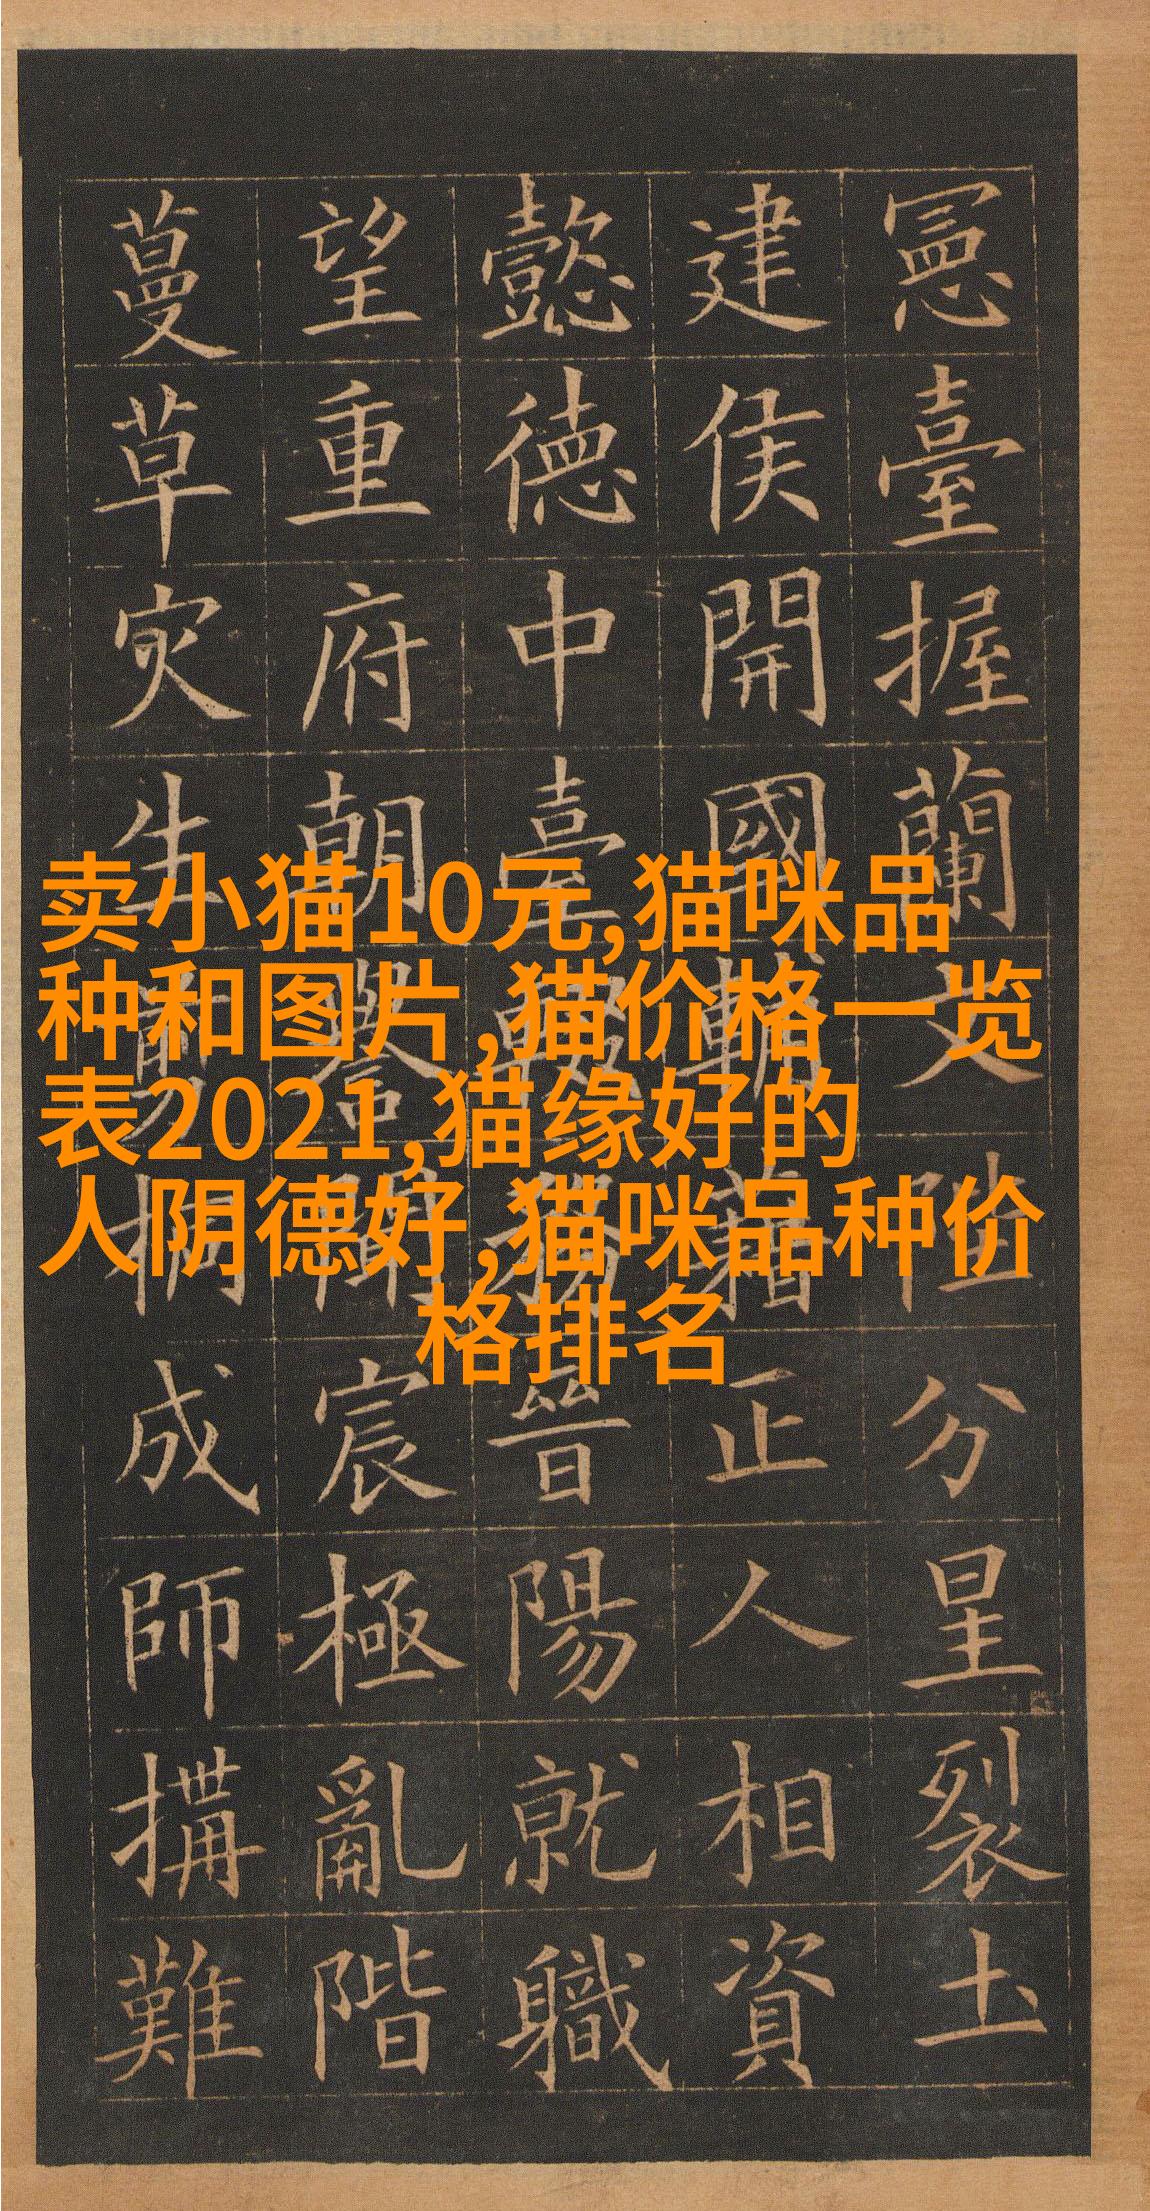 憲臺握蘭文陛分星裂土
建侯開國輔藉正人相資
懿德中臺輟務晉陽就職
望重府朝譽聞宸極亂階
蔓草灾生剪桐成師搆難
卖小猫10元,猫咪品
种和图片,猫价格一览
表2021,猫缘好的
人阴德好,猫咪品种价
格排名